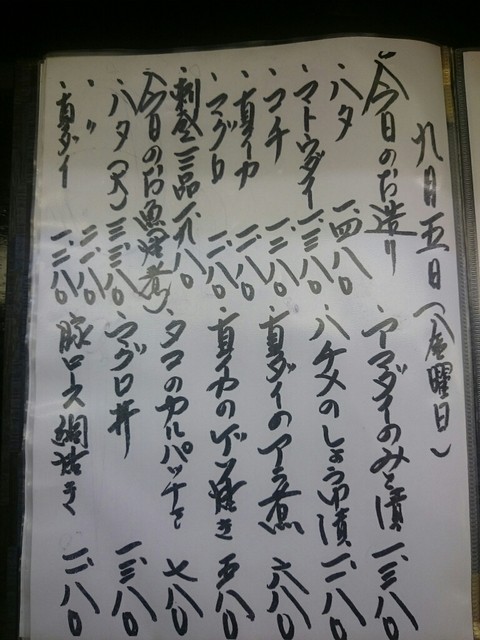 九月五日(金曜日)
〈今日のお造り
、ハタ 一、四八〇
、マトウダイ 一、三八〇
、コチ 一、二八〇
、真イカ 一、一八〇
、マグロ 一、二八〇
、刺盛三品 一、九八〇
〈今日のお魚(沼煮)
、ハタ(大) 三、三八〇
、〃 二、二八〇
、真ダイ 一、二八〇
、アマダイのみそ漬 一、三八〇
、ハチメのしょうゆ漬 一、一八〇
、真ダイのアラ煮 六八〇
、真イカのゲソ焼き 五八〇
、タコのカルパッチョ 七八〇
、マグロ丼 一、三八〇
、豚ロース網焼き 一、一八〇